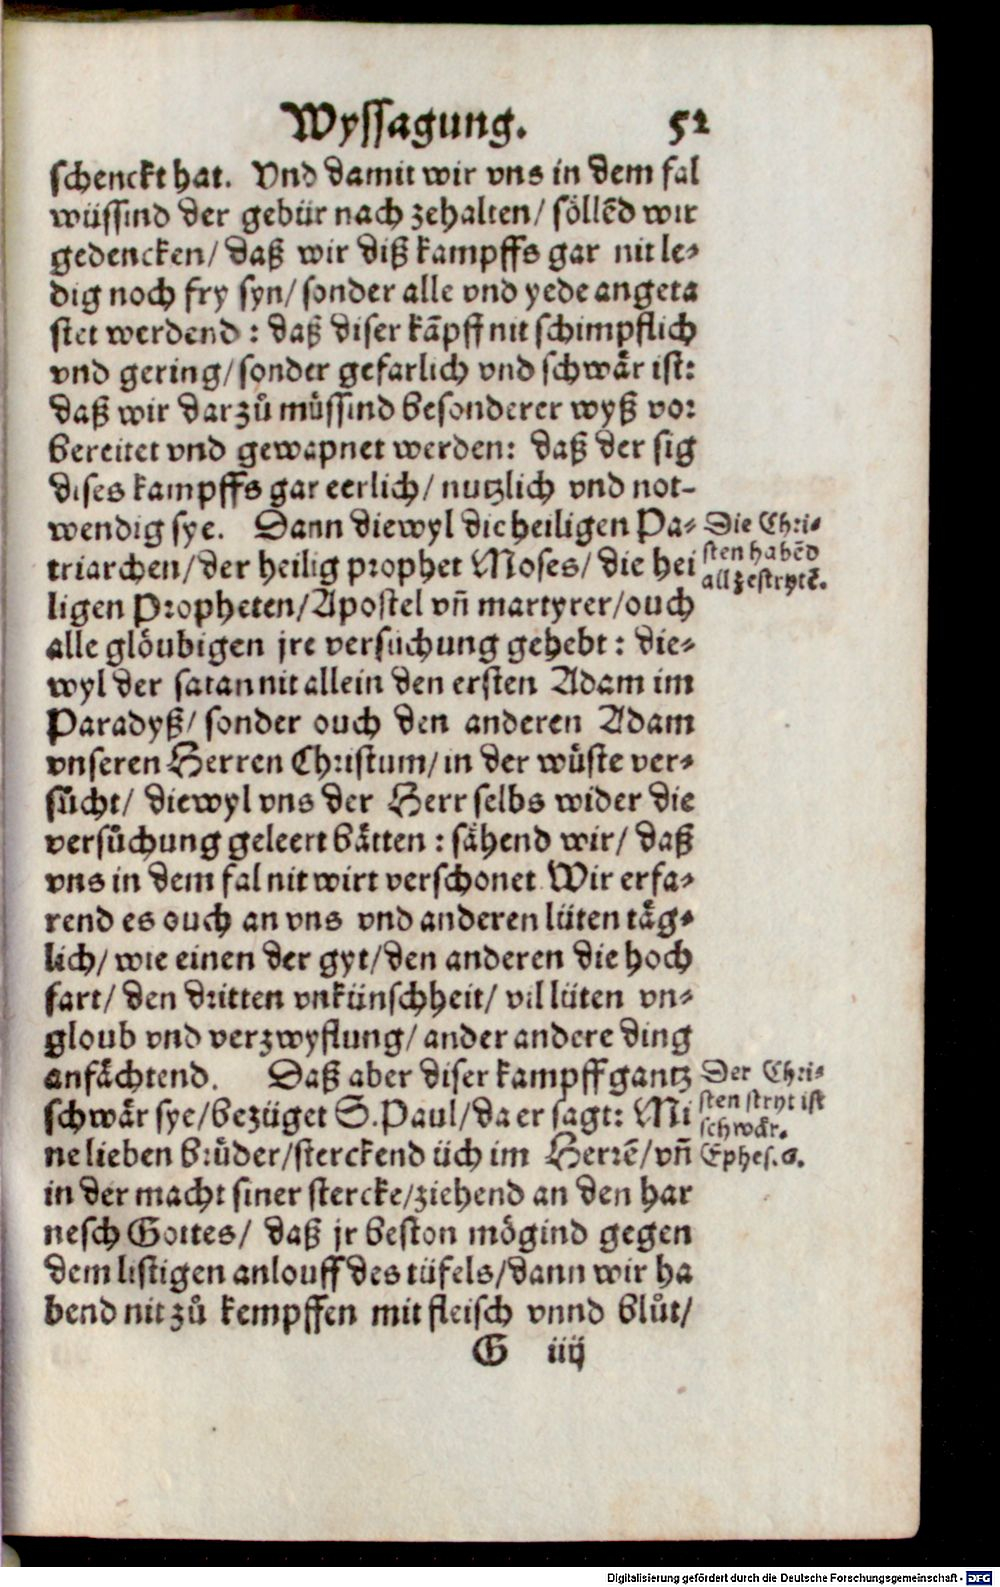 Wyssagung. 52
schenckt hat. Vnd damit wir vns in dem fal
wüssind der gebür nach zehalten/ söllẽd wir
gedencken/ daß wir diß kampffs gar nit le-
dig noch fry syn/ sonder alle vnd yede angeta
stet werdend: daß diser kãpff nit schimpflich
vnd gering/ sonder gefarlich vnd schwår ist:
daß wir darzů müssind besonderer wyß vor
bereitet vnd gewapnet werden: daß der sig
dises kampffs gar eerlich/ nutzlich vnd not-
wendig sye. Dann diewyl die heiligen Pa-
triarchen/ der heilig prophet Moses/ die hei
ligen Propheten/ Apostel vñ martyrer/ ouch
alle glöubigen jre versuchung gehebt: die-
wyl der satan nit allein den ersten Adam im
Paradyß/ sonder ouch den anderen Adam
vnseren Herren Christum/ in der wüste ver-
sůcht/ diewyl vns der Herr selbs wider die
versůchung geleert bätten: sähend wir/ daß
vns in dem fal nit wirt verschonet. Wir erfa-
rend es ouch an vns vnd anderen lüten täg-
lich/ wie einen der gyt/ den anderen die hoch
fart/ den dritten vnkünschheit/ vil lüten vn-
gloub vnd verzwyflung/ ander andere ding
anfächtend. Daß aber diser kampff gantz
schwår sye/ bezüget S. Paul/ da er sagt: Mi
ne lieben brüder/ sterckend üch im Herrẽ/ vñ
in der macht siner stercke/ ziehend an den har
nesch Gottes/ daß jr beston mögind gegen
dem listigen anlouff des tüfels/ dann wir ha
bend nit zů kempffen mit fleisch vnnd blůt/
G iiij
Die Chri-
sten habẽd
all zestrytẽ.
Der Chri-
sten stryt ist
schwår.
Ephes. 6.
Digitalisierung gefördert durch die Deutsche Forschungsgemeinschaft - DFG